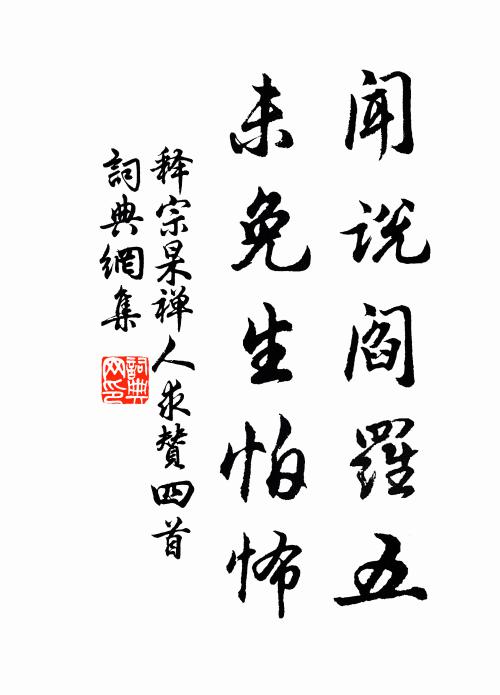 闻说阎罗五
未免生怕怖
释宗杲禅人求赞四首
詞典網集
詞典网印